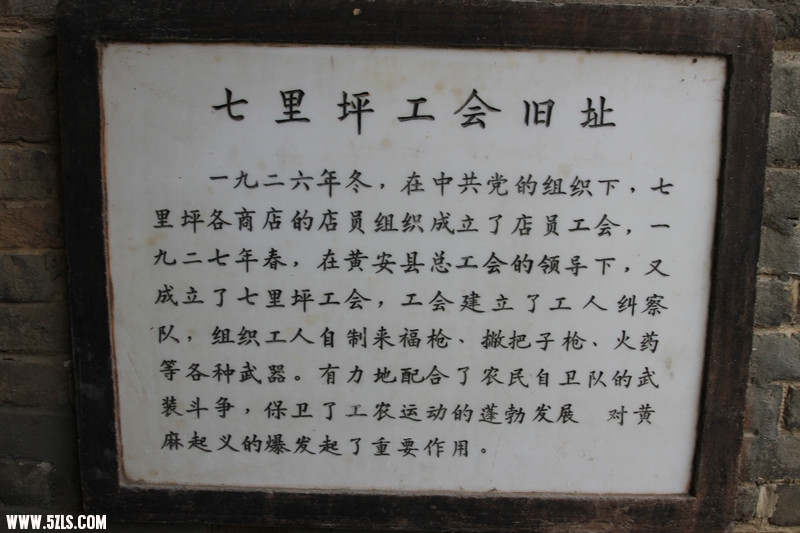 七里坪工会旧址
一九二六年冬，在中共党的组织下，七
里坪各商店的店员组织成立了店员工会，一
九二七年春，在黄安县总工会的领导下，又
成立了七里坪工会，工会建立了工人纠察
队，组织工人自制来福枪、撇把子枪、火药
等各种武器。有力地配合了农民自卫队的武
装斗争，保卫了工农运动的蓬勃发展 对黄
麻起义的爆发起了重要作用。
WWW.5ZLS.COM